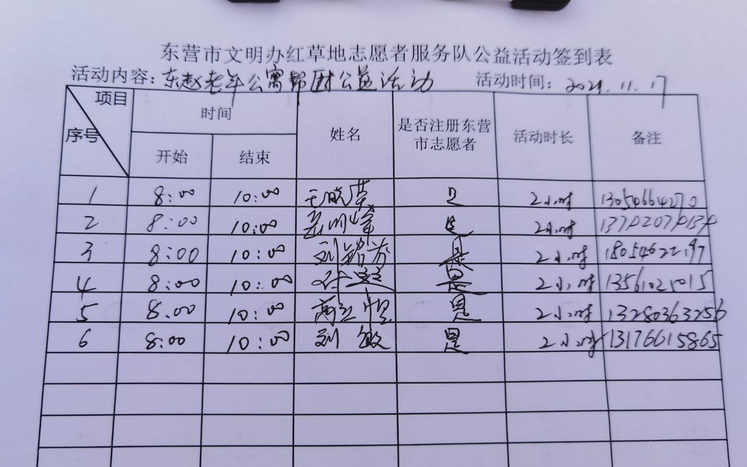 东营市文明办红草地志愿者服务队公益活动签到表
活动内容：东赵老年公寓帮厨公益活动 活动时间：2021.11.17
项目 序号 时间 姓名 是否注册东营市志愿者 活动时长 备注
开始 结束
1 8:00 10:00 是 2小时 13050664270
2 8:00 10:00 是 2小时
3 8:00 10:00 是 2小时 18054622197
4 8:00 10:00 是 2小时 13561025015
5 8:00 10:00 是 2小时 13280363256
6 8:00 10:00 刘敏 是 2小时 13176615865